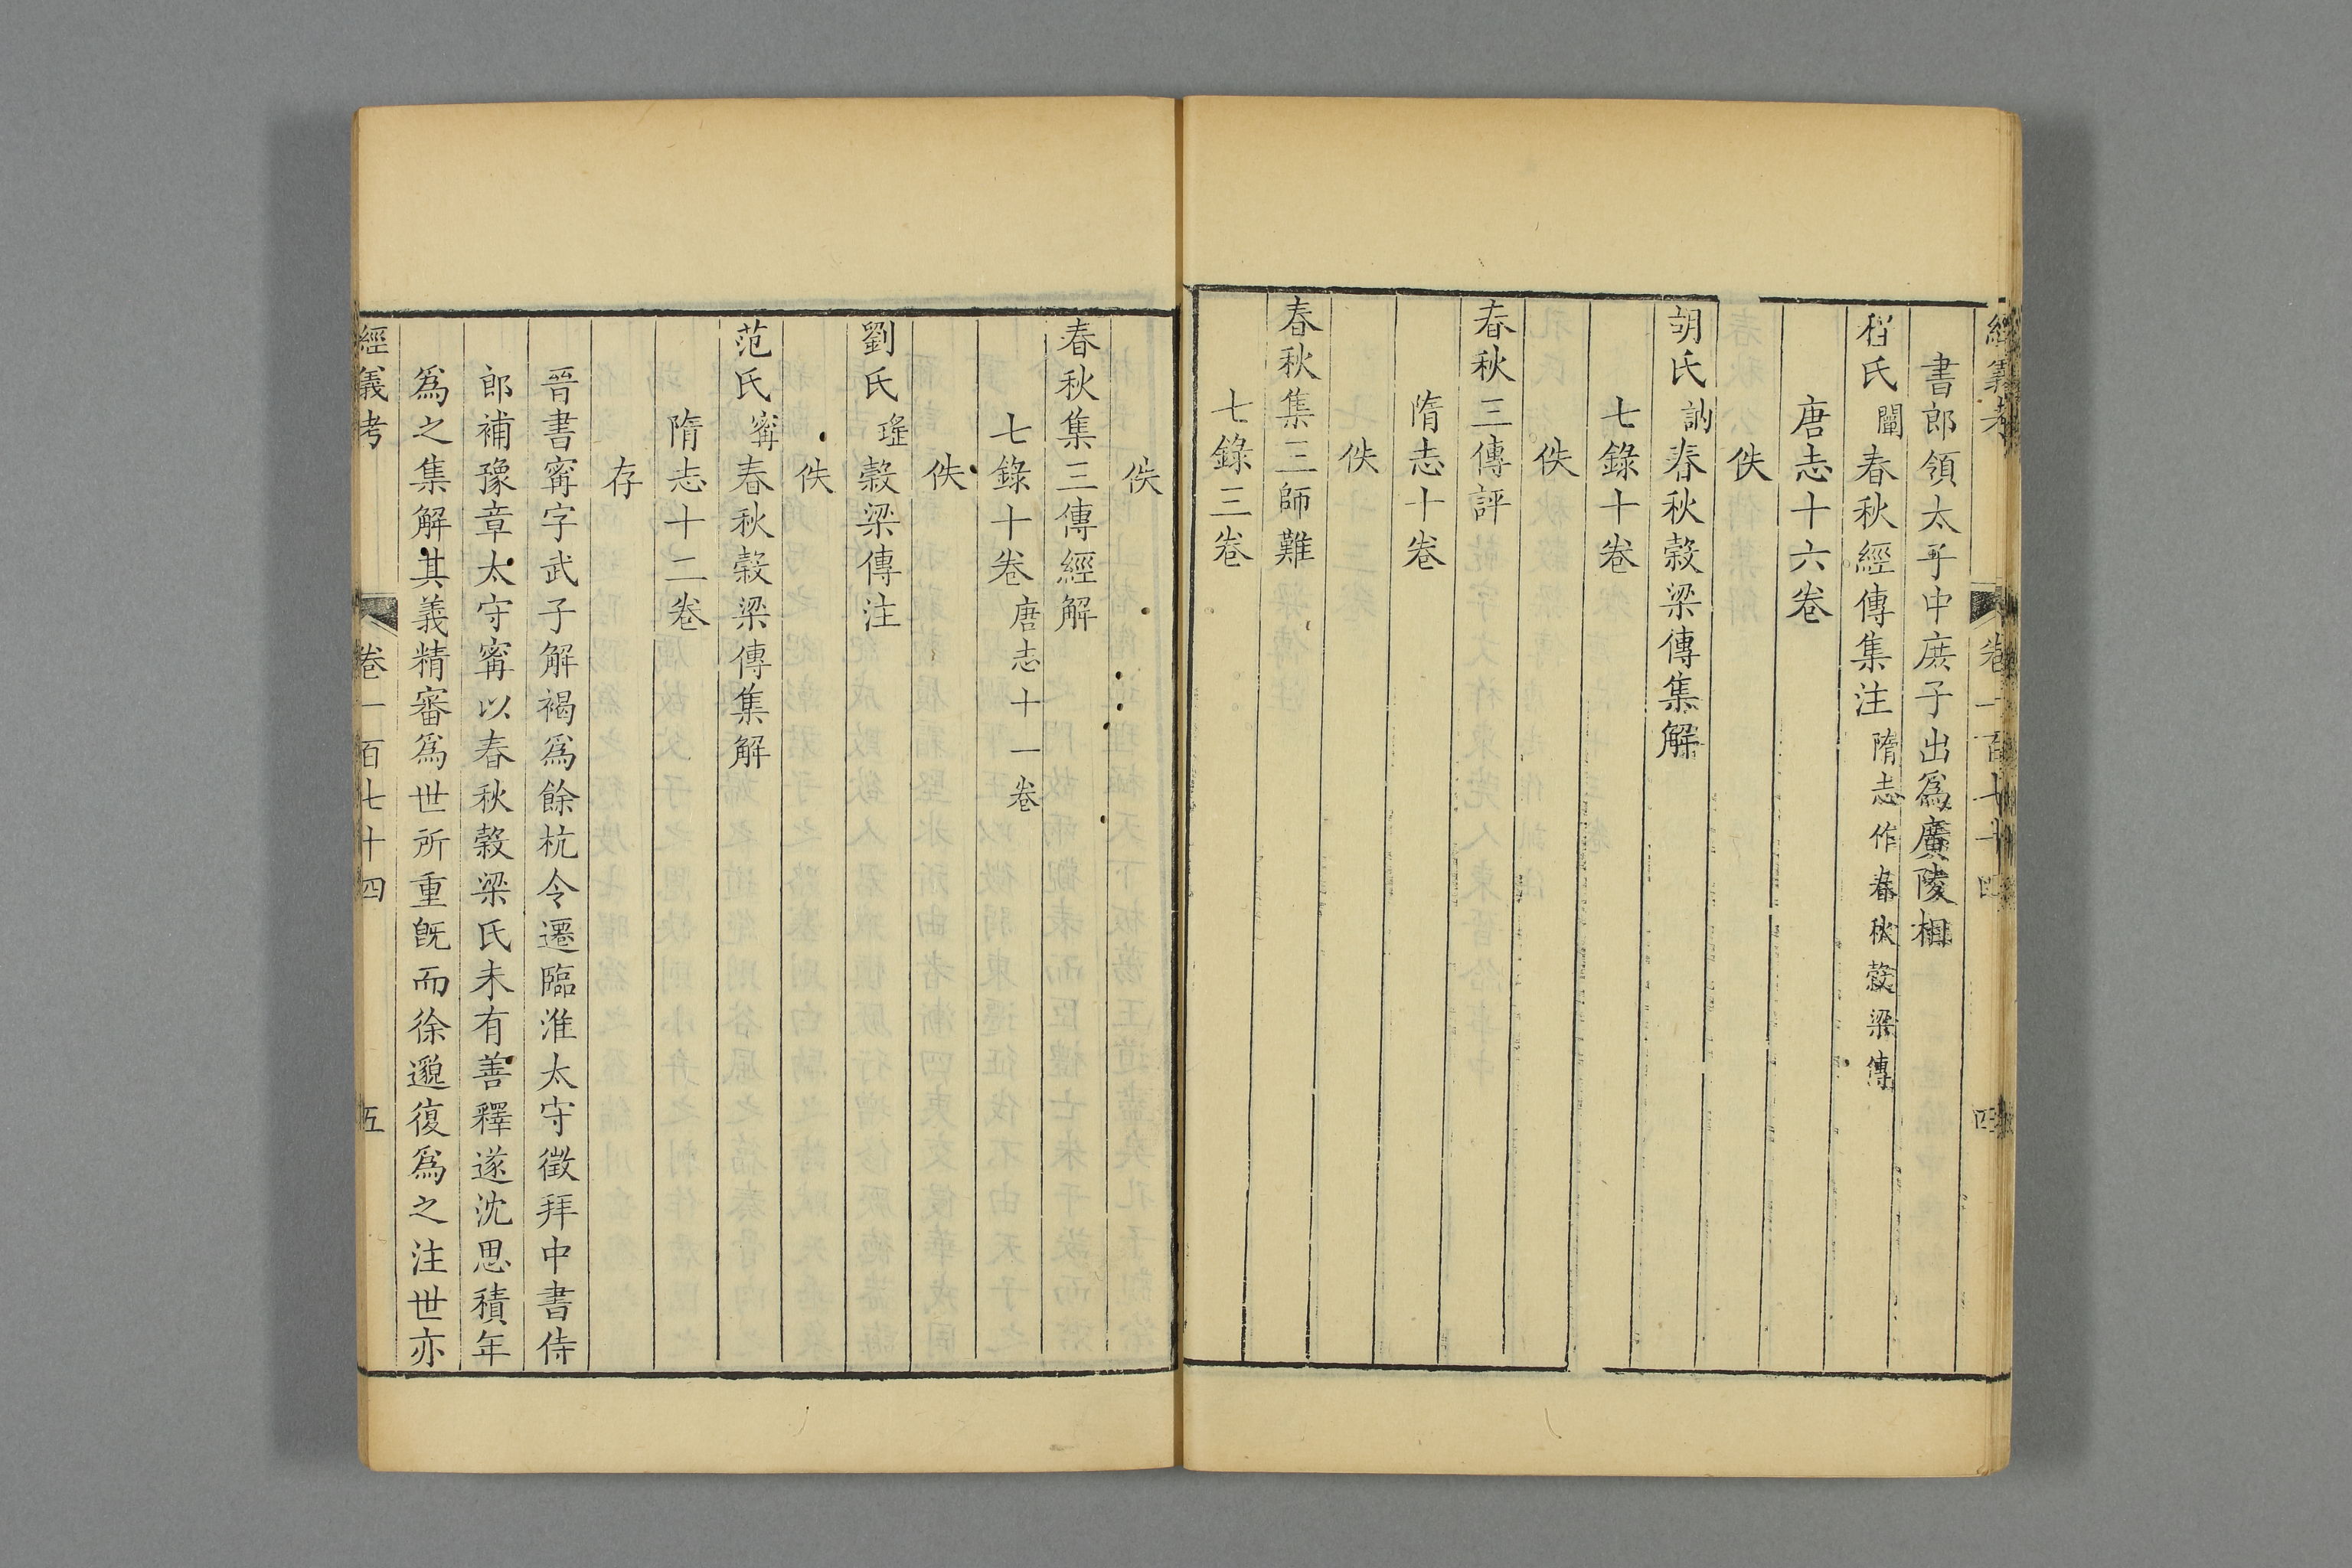 經義考 卷一百七十四 四
書郎領太子中庶子出爲廣陵相
程氏闡春秋經傳集注隋志作春秋穀梁傳
唐志十六卷
佚
胡氏訥春秋穀梁傳集解
七錄十卷
佚
春秋三傳評
隋志十卷
佚
春秋集三師難
七錄三卷
佚
春秋集三傳經解
七錄十卷唐志十一卷
佚
劉氏瑤穀梁傳注
佚
范氏甯春秋穀梁傳集解
隋志十二卷
存
晉書甯字武子解褐爲餘杭令遷臨淮太守徵拜中書侍
郎補豫章太守甯以春秋穀梁氏未有善釋遂沈思積年
爲之集解其義精審爲世所重旣而徐邈復爲之注世亦
經義考 卷一百七十四 五